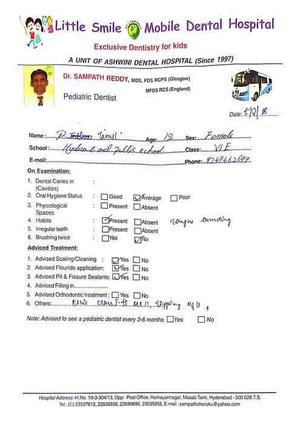 Little Smile Mobile Dental Hospital
Exclusive Dentistry for kids
A UNIT OF ASHWINI DENTAL HOSPITAL (Since 1997)
Dr. SAMPATH REDDY, MDS, FDS RCPS (Glasgow)
MFDS RCS (England)
Pediatric Dentist
Date:
Name: Age: Sex: Female
School: Hyderabad public school Class: VI E
E-mail: Phone:
On Examination:
1. Dental Caries in :
(Cavities)
2. Oral Hygiene Status : Good Average Poor
3. Physological : Present Absent
Spaces
4. Habits : Present Absent
5. Irregular teeth : Present Absent
6. Brushing twice : Yes No
Adviced Treatment:
1. Advised Scaling/Cleaning : Yes No
2. Advised Flouride application: Yes No
3. Advised Pit & Fissure Sealants: Yes No
4. Advised Filling in
5. Advised Orthodontic Treatment : Yes No
6. Others:
Note: Advised to see a pediatric dentist every 3-6 months Yes No
Hospital Address -H.No. 10-3-304/13, Opp: Post Office, Humayunnagar, Masab Tank, Hyderabad - 500 028.T.S.